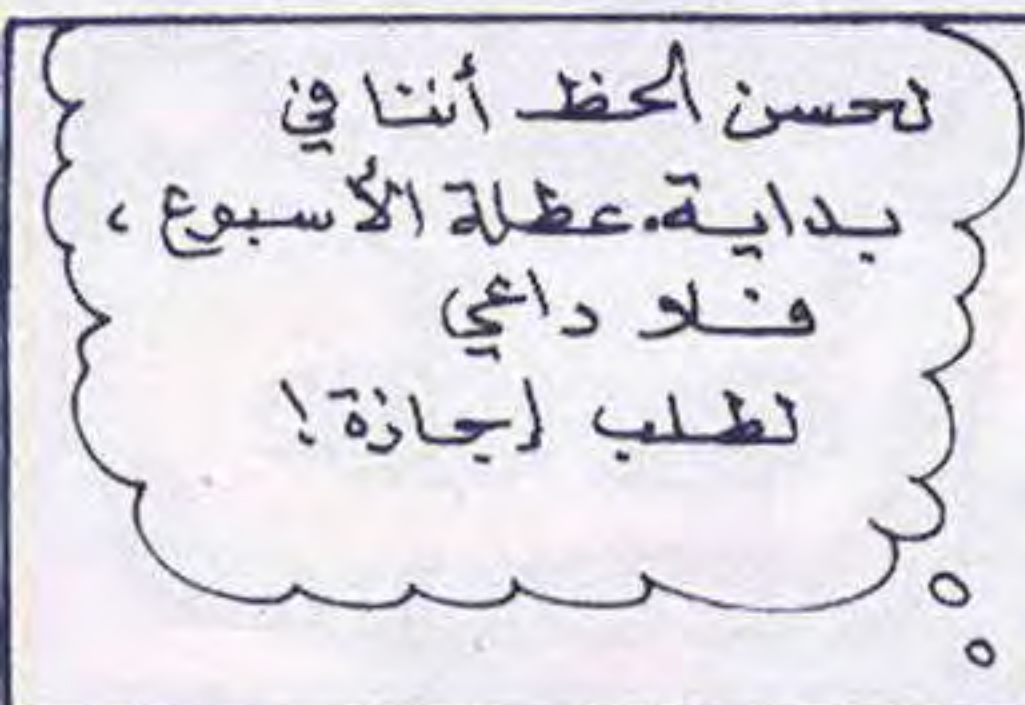 لحسن الحظ أننا في
بداية عطلة الأسبوع ،
فلا داعي
لطلب إجازة !